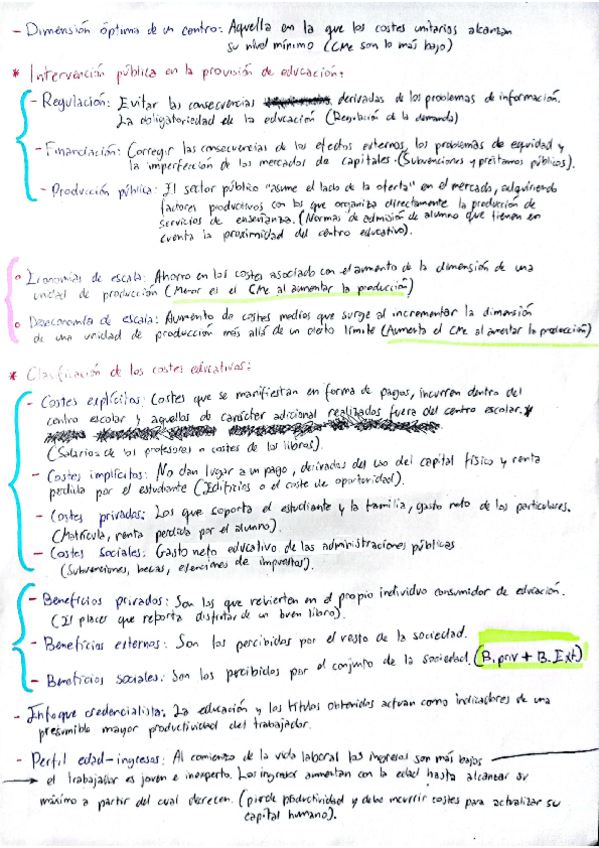 - Dimensión óptima de un centro: Aquella en la que los costes unitarios alcanzan
su nivel mínimo (CMe son lo más bajo)
* Intervención pública en la provisión de educación:
- Regulación: Evitar las consecuencias derivadas de los problemas de información.
La obligatoriedad de la educación (Regulación de la demanda)
- Financiación: Corregir las consecuencias de los efectos externos, los problemas de equidad y
la imperfección de los mercados de capitales. (Subvenciones y préstamos públicos).
- Producción pública: El sector público "asume el lado de la oferta" en el mercado, adquiriendo
factores productivos con los que organiza directamente la producción de
servicios de enseñanza. (Normas de admisión de alumno que tienen en
cuenta la proximidad del centro educativo).
o Economías de escala: Ahorro en los costes asociado con el aumento de la dimensión de una
unidad de producción (Menor es el CMe al aumentar la producción)
o Deseconomía de escala: Aumento de costes medios que surge al incrementar la dimensión
de una unidad de producción más allá de un cierto límite (Aumenta el CMe al aumentar la producción)
* Clasificación de los costes educativos:
- Costes explícitos: Costes que se manifiestan en forma de pagos, incurren dentro del
centro escolar y aquellos de carácter adicional realizados fuera del centro escolar.*
(Salarios de los profesores o costes de los libros).
- Costes implícitos: No dan lugar a un pago, derivados del uso del capital físico y renta
perdida por el estudiante (Edificios o el coste de oportunidad).
- Costes privados: Los que soporta el estudiante y la familia, gasto neto de los particulares.
(Matrícula, renta perdida por el alumno).
- Costes sociales: Gasto neto educativo de las administraciones públicas
(Subvenciones, becas, exenciones de impuestos).
- Beneficios privados: Son los que revierten en el propio individuo consumidor de educación.
(El placer que reporta disfrutar de un buen libro).
- Beneficios externos: Son los percibidos por el resto de la sociedad.
- Beneficios sociales: Son los percibidos por el conjunto de la sociedad. (B. priv + B. Ext)
- Enfoque credencialista: La educación y los títulos obtenidos actúan como indicadores de una
presumible mayor productividad del trabajador.
- Perfil edad-ingresos: Al comienzo de la vida laboral los ingresos son más bajos
el trabajador es joven e inexperto. Los ingresos aumentan con la edad hasta alcanzar su
máximo a partir del cual decrecen. (pierde productividad y debe incurrir costes para actualizar su
capital humano).